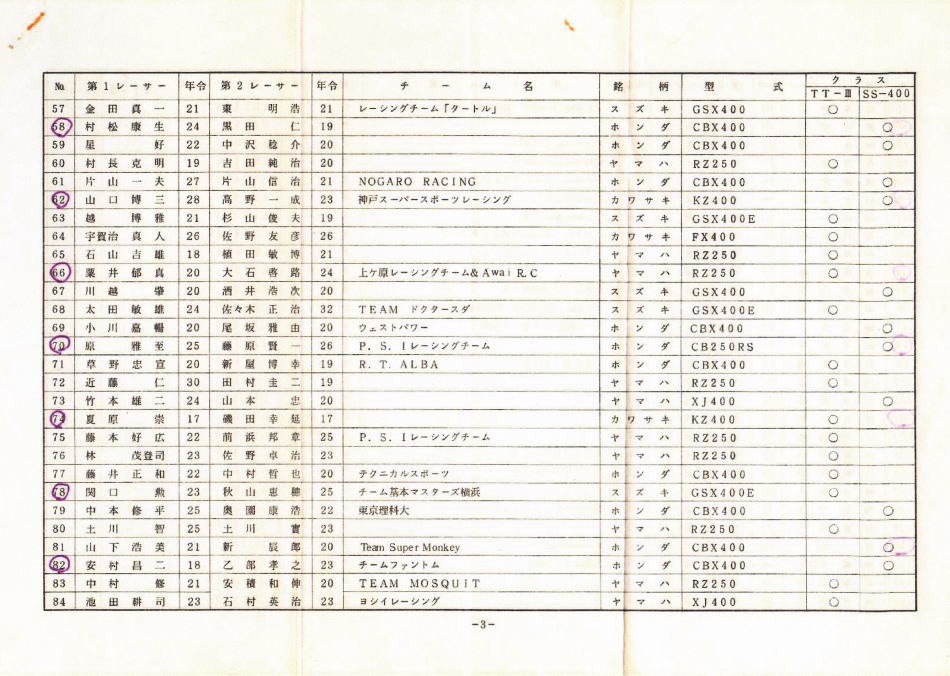 No. 第1レーサー 年令 第2レーサー 年令 チーム名 銘柄 型式 クラス
TT-Ⅲ SS-400
57 金田真一 21 東明浩 21 レーシングチーム「タートル」 スズキ GSX400 ○
58 村松康生 24 黒田仁 19 ホンダ CBX400 ○
59 星好 22 中沢稔介 20 ホンダ CBX400 ○
60 村長克明 19 吉田純治 20 ヤマハ RZ250 ○
61 片山一夫 27 片山信治 21 NOGARO RACING ホンダ CBX400 ○
62 山口博三 28 高野一成 23 神戸スーパースポーツレーシング カワサキ KZ400 ○
63 越博雅 21 杉山俊夫 19 スズキ GSX400E ○
64 宇賀治真人 26 佐野友彦 26 カワサキ FX400 ○
65 石山吉雄 18 植田敏博 21 ヤマハ RZ250 ○
66 粟井郁真 20 大石啓路 24 上ケ原レーシングチーム& Awai R.C ヤマハ RZ250 ○
67 川越肇 20 酒井浩次 20 スズキ GSX400 ○
68 太田敏雄 24 佐々木正治 32 TEAM ドクタースダ スズキ GSX400E ○
69 小川嘉暢 20 尾坂雅由 20 ウェストパワー ホンダ CBX400 ○
70 原雅至 25 藤原賢一 26 P.S.Iレーシングチーム ホンダ CB250RS ○
71 草野忠宣 20 新屋博幸 19 R.T.ALBA ホンダ CBX400 ○
72 近藤仁 30 田村圭二 19 ヤマハ RZ250 ○
73 竹本雄二 24 山本忠 20 ヤマハ XJ400 ○
74 夏原崇 17 磯田幸延 17 カワサキ KZ400 ○
75 藤本好広 22 前浜邦章 25 P.S.Iレーシングチーム ヤマハ RZ250 ○
76 林茂登司 23 佐野卓治 23 ヤマハ RZ250 ○
77 藤井正和 22 中村哲也 20 テクニカルスポーツ ホンダ CBX400 ○
78 関口勲 23 秋山恵穂 25 チーム基本マスターズ横浜 スズキ GSX400E ○
79 中本修平 25 奥園康浩 22 東京理科大 ホンダ CBX400 ○
80 土川智 25 土川實 23 ヤマハ RZ250 ○
81 山下浩美 21 新辰郎 20 Team Super Monkey ホンダ CBX400 ○
82 安村昌二 18 乙部孝之 23 チームファントム ホンダ CBX400 ○
83 中村修 21 安積和伸 20 TEAM MOSQUIT ヤマハ RZ250 ○
84 池田耕司 23 石村英治 23 ヨシイレーシング ヤマハ XJ400 ○
-3-